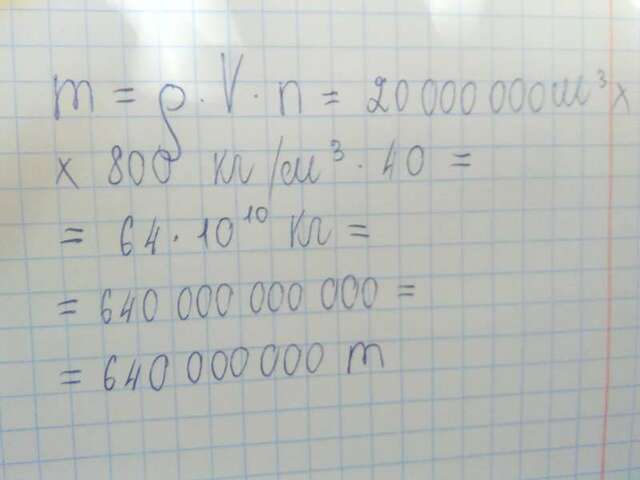 m = ρ · V · n = 20 000 000 м³ ×
× 800 кг/м³ · 40 =
= 64 · 10¹⁰ кг =
= 640 000 000 000 =
= 640 000 000 т